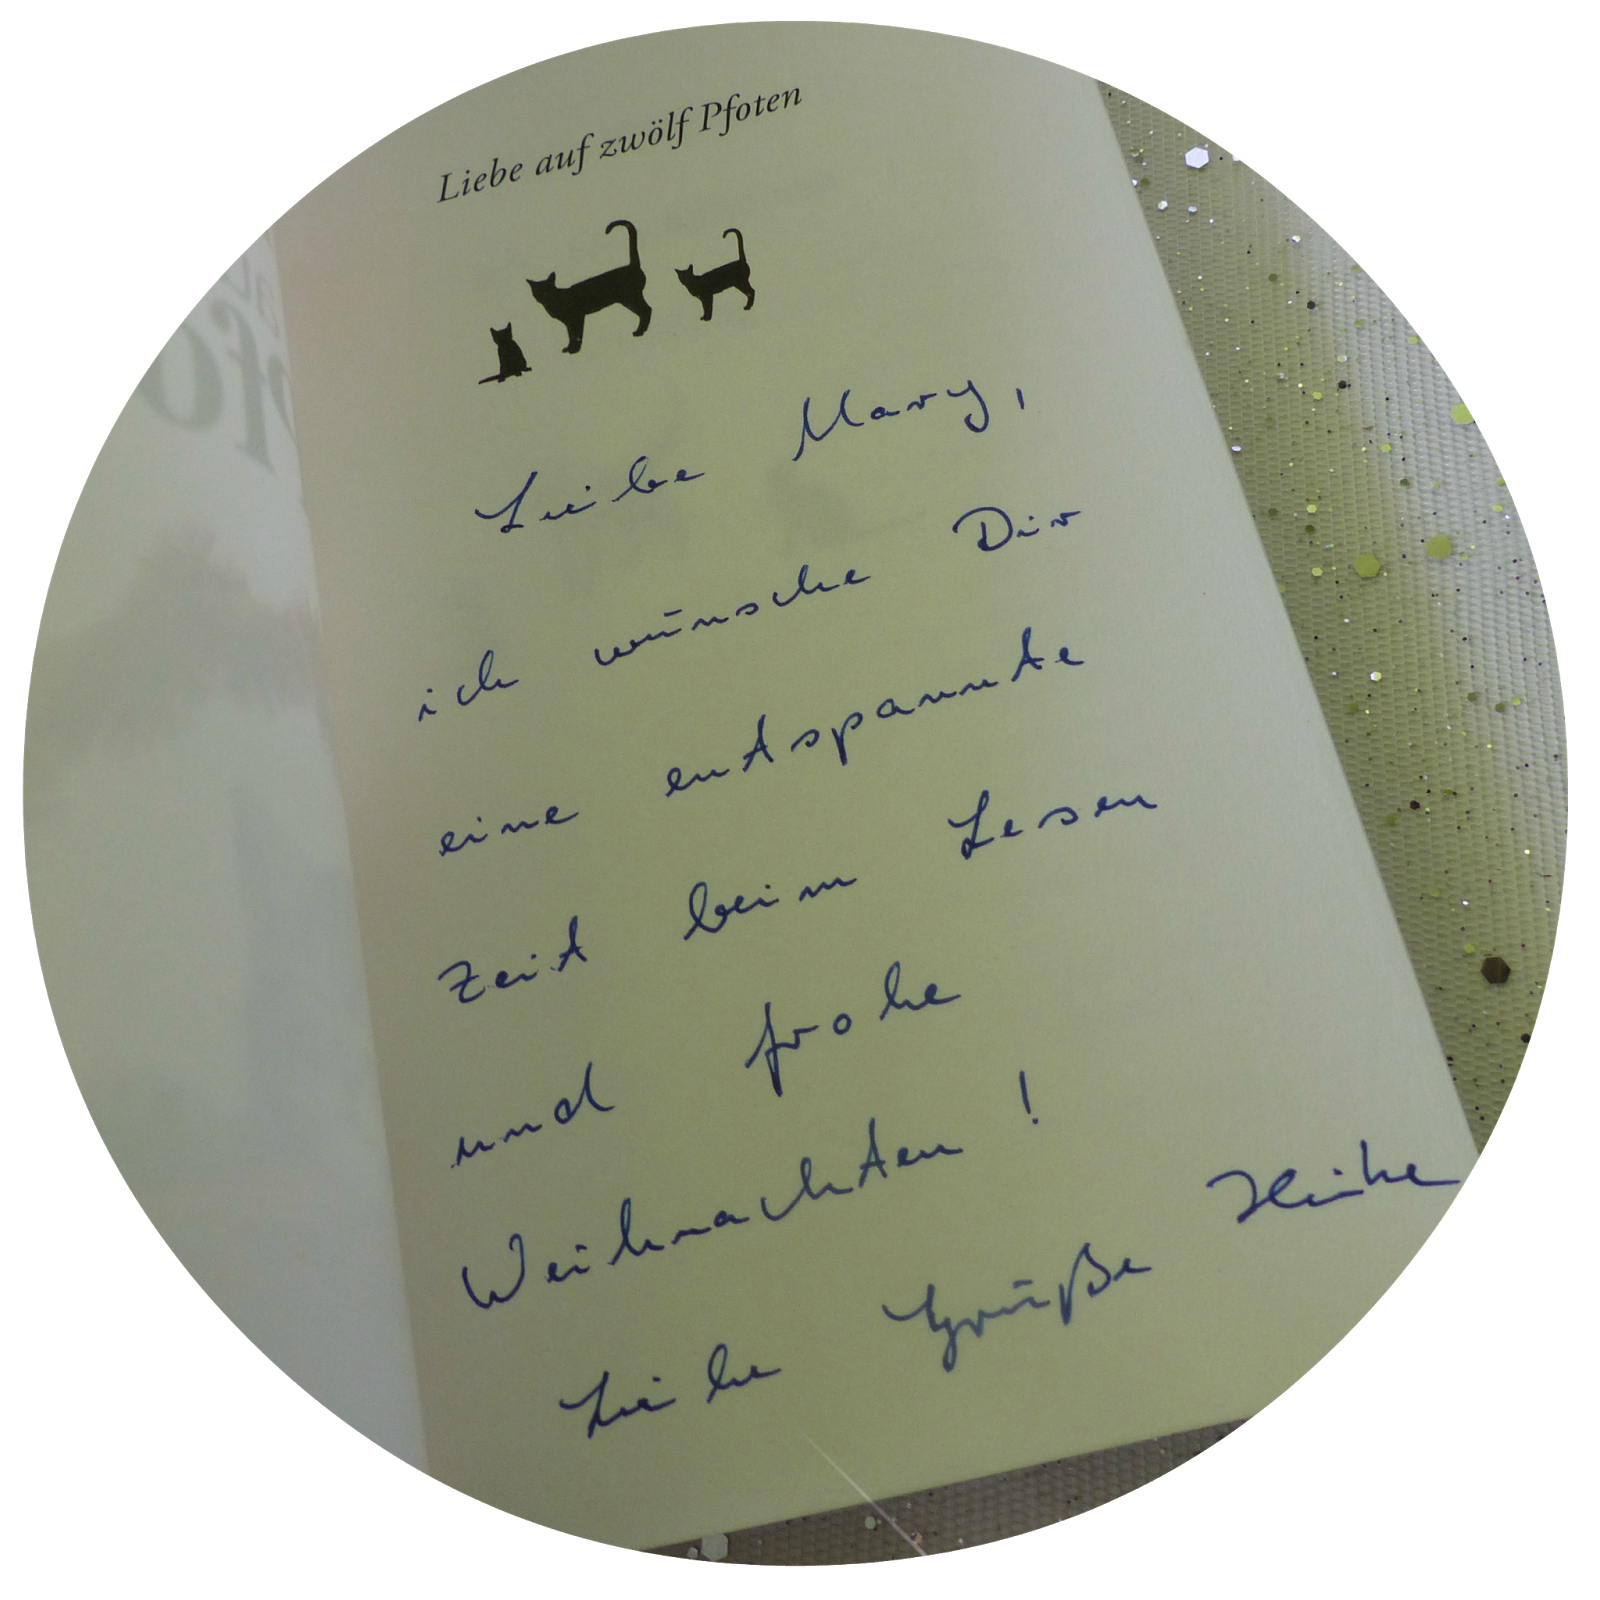 Liebe auf zwölf Pfoten
Liebe Mary,
ich wünsche Dir
eine entspannte
Zeit beim Lesen
und frohe
Weihnachten!
Liebe Grüße Heike